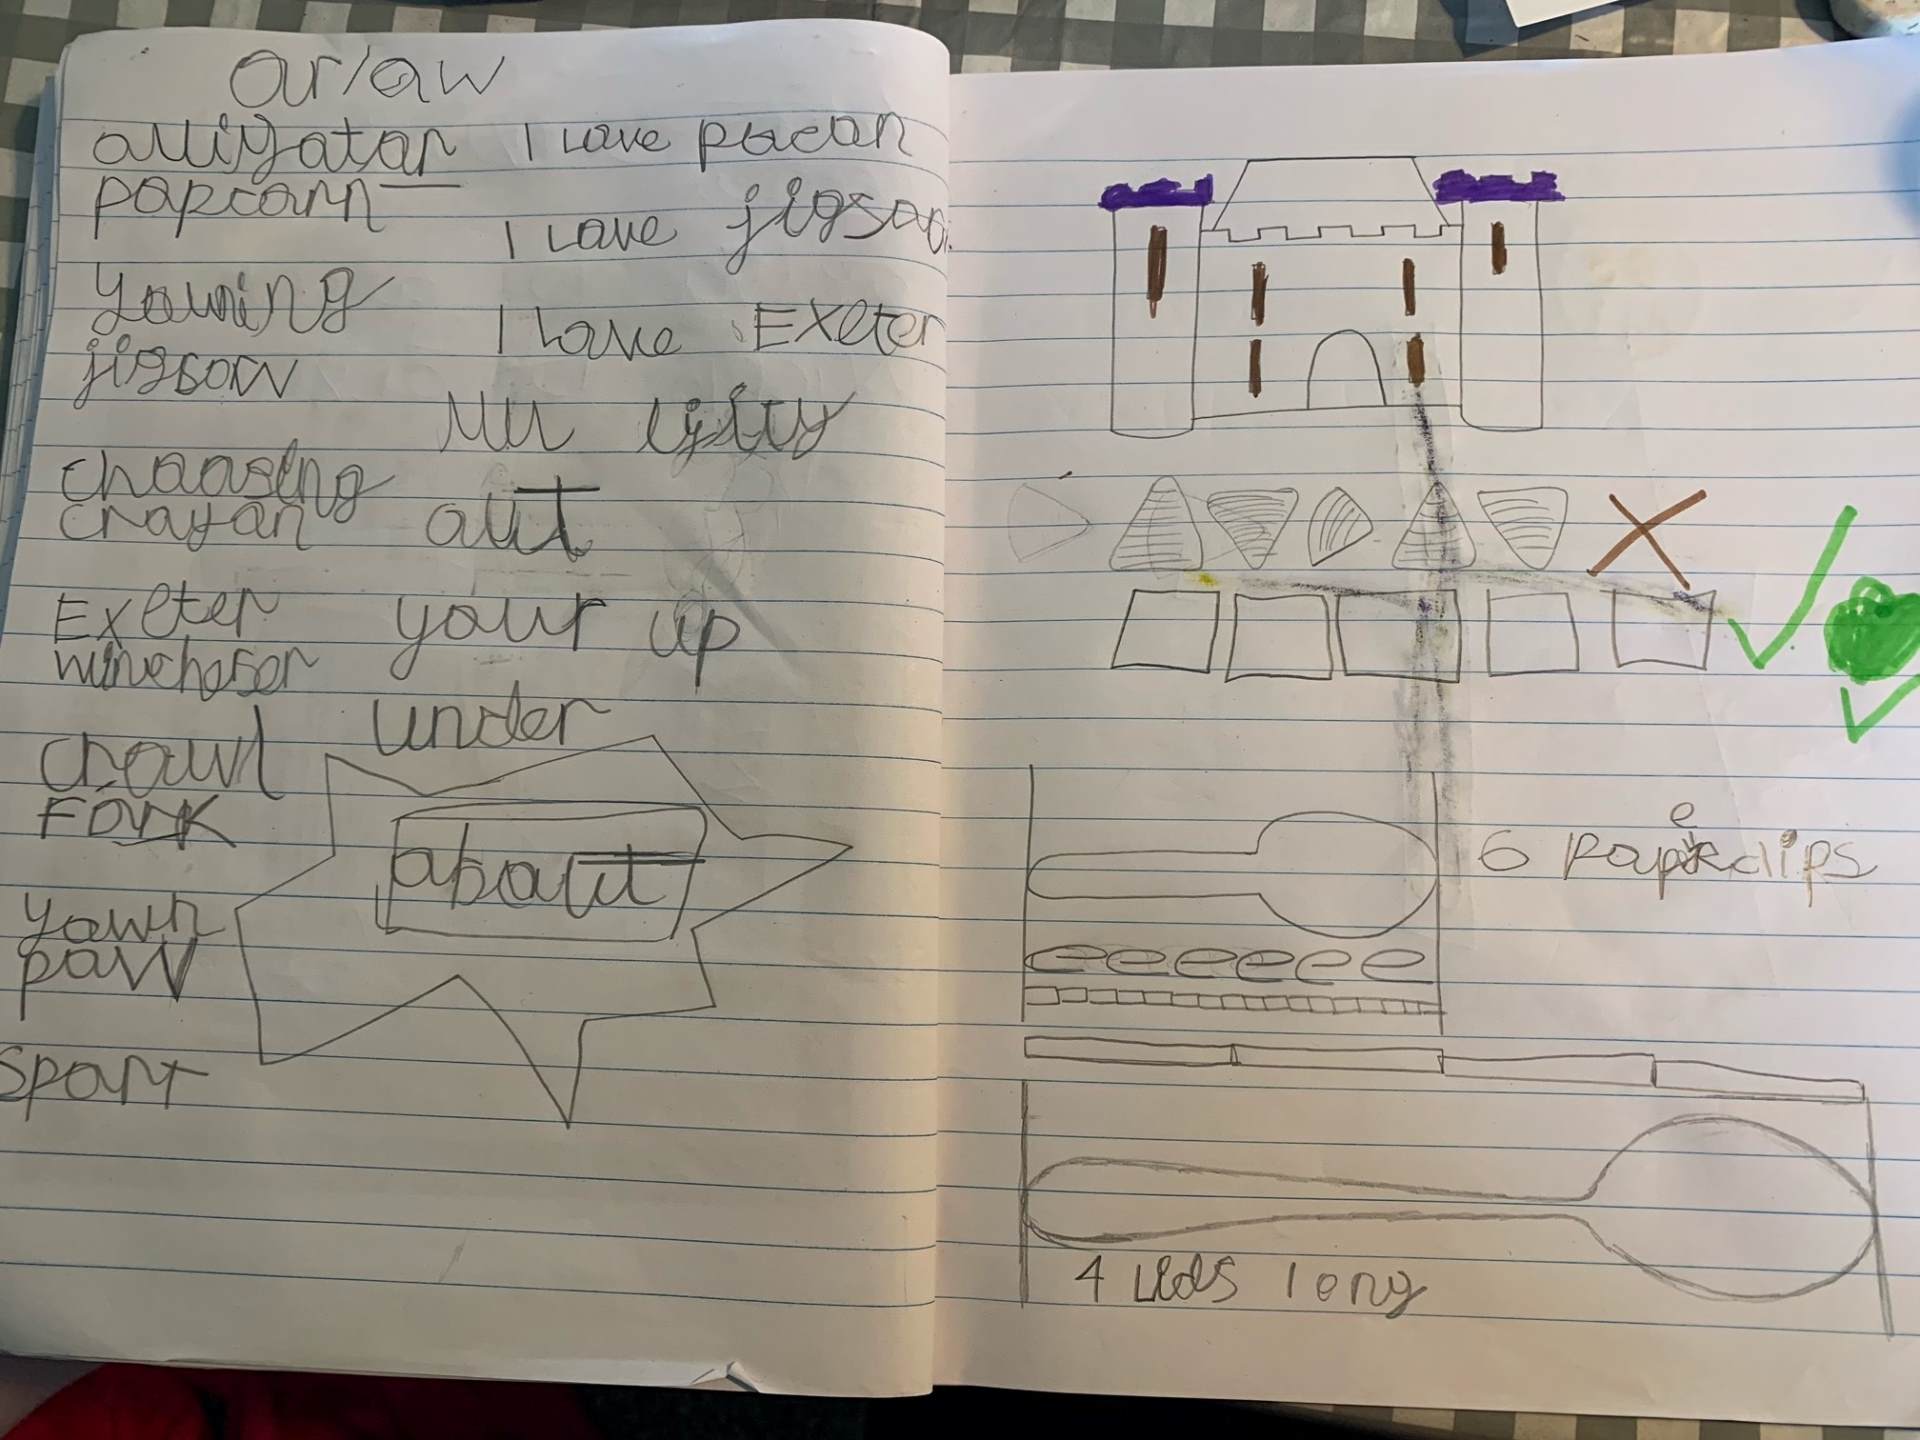 or/aw
alligator
popcorn
yawning
jigsaw
choosing
crayon
Exeter
winchester
crawl
Fork
yawn
paw
sport
I love
I love jigsaw
I love Exeter
out
your up
under
about
6 paperclips
4 lids long